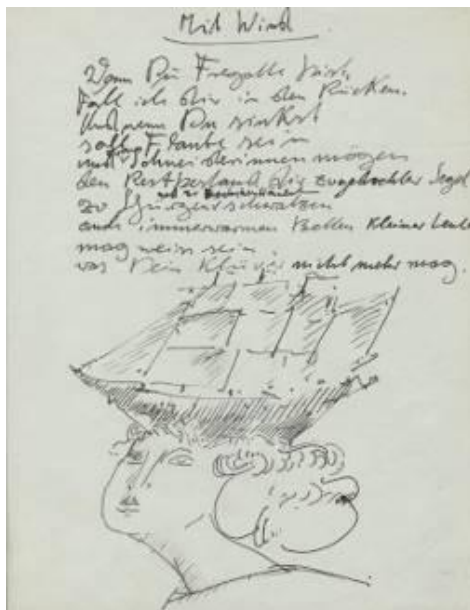 Mit Wind
Wenn Du Fregatte bist,
fall ich dir in den Rücken.
Und wenn Du sinkst
soll Flaute sein
und Schneiderinnen mögen
den Restbestand Segel
zu
auf immerwarmen Betten kleiner Leute
mag weiss sein,
was Dein Klüver nicht mehr mag.